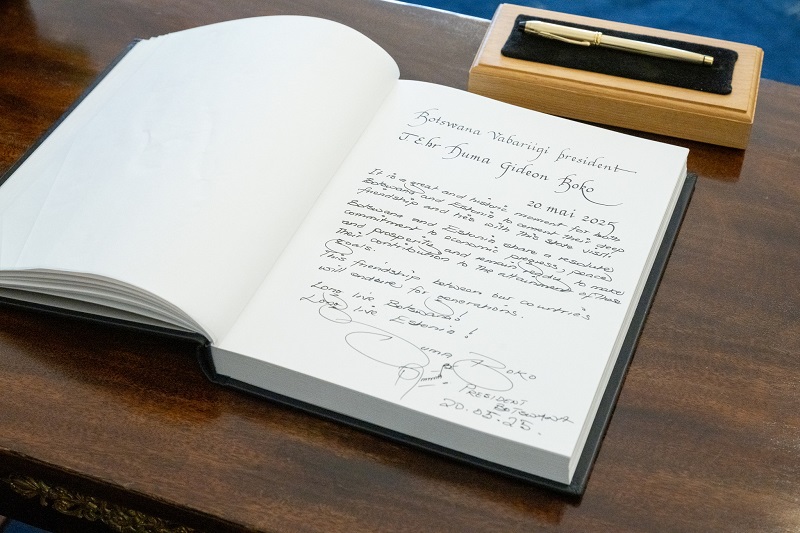 Botswana Vabariigi president
T.E hr Duma Gideon Boko
20 mai 2025
It is a great and historic moment for both
Botswana and Estonia to cement their deep
friendship and ties with this state visit.
Botswana and Estonia share a resolute
commitment to economic progress, peace
and prosperity and remain ready to make
their contribution to the attainment of these
goals.
This friendship between our countries
will endure for generations.
Long live Botswana!
Long live Estonia!
Duma Boko
PRESIDENT
BOTSWANA
20.05.25.